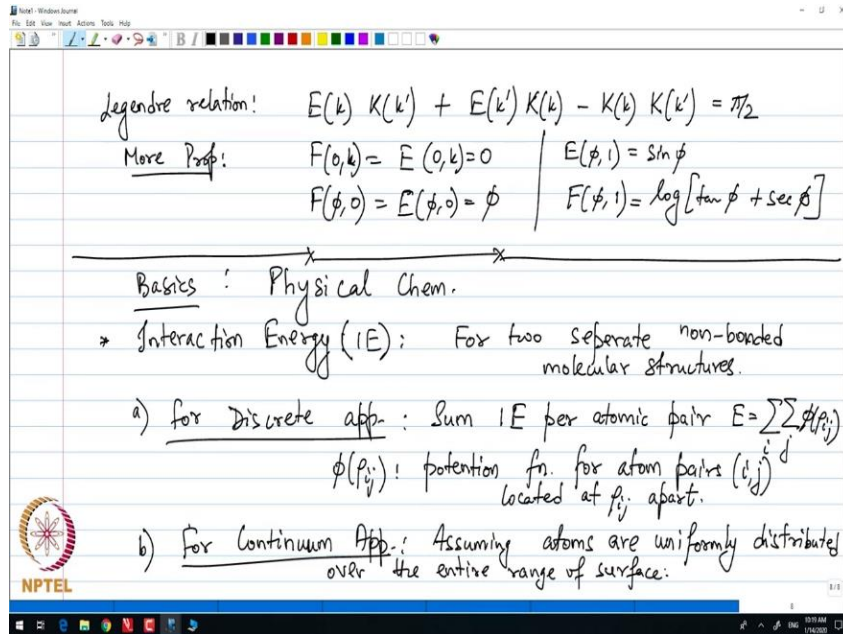 Note1 - Windows Journal
File Edit View Insert Actions Tools Help
B I
Legendre relation! E(k) K(k') + E(k') K(k) - K(k) K(k') = π/2
More Prop! F(0,k) = E(0,k) = 0 | E(φ,1) = sin φ
F(φ,0) = E(φ,0) = φ | F(φ,1) = log[tan φ + sec φ]
Basics : Physical Chem.
* Interaction Energy (IE) : For two seperate non-bonded
molecular structures.
a) for Discrete app. : Sum IE per atomic pair E = ∑i ∑j φ(ρij)
φ(ρij) ! potention fn. for atom pairs (i,j)
located at ρij apart.
b) For Continuum App. : Assuming atoms are uniformly distributed
over the entire range of surface:
NPTEL
8
ENG 10:19 AM
1/14/2020